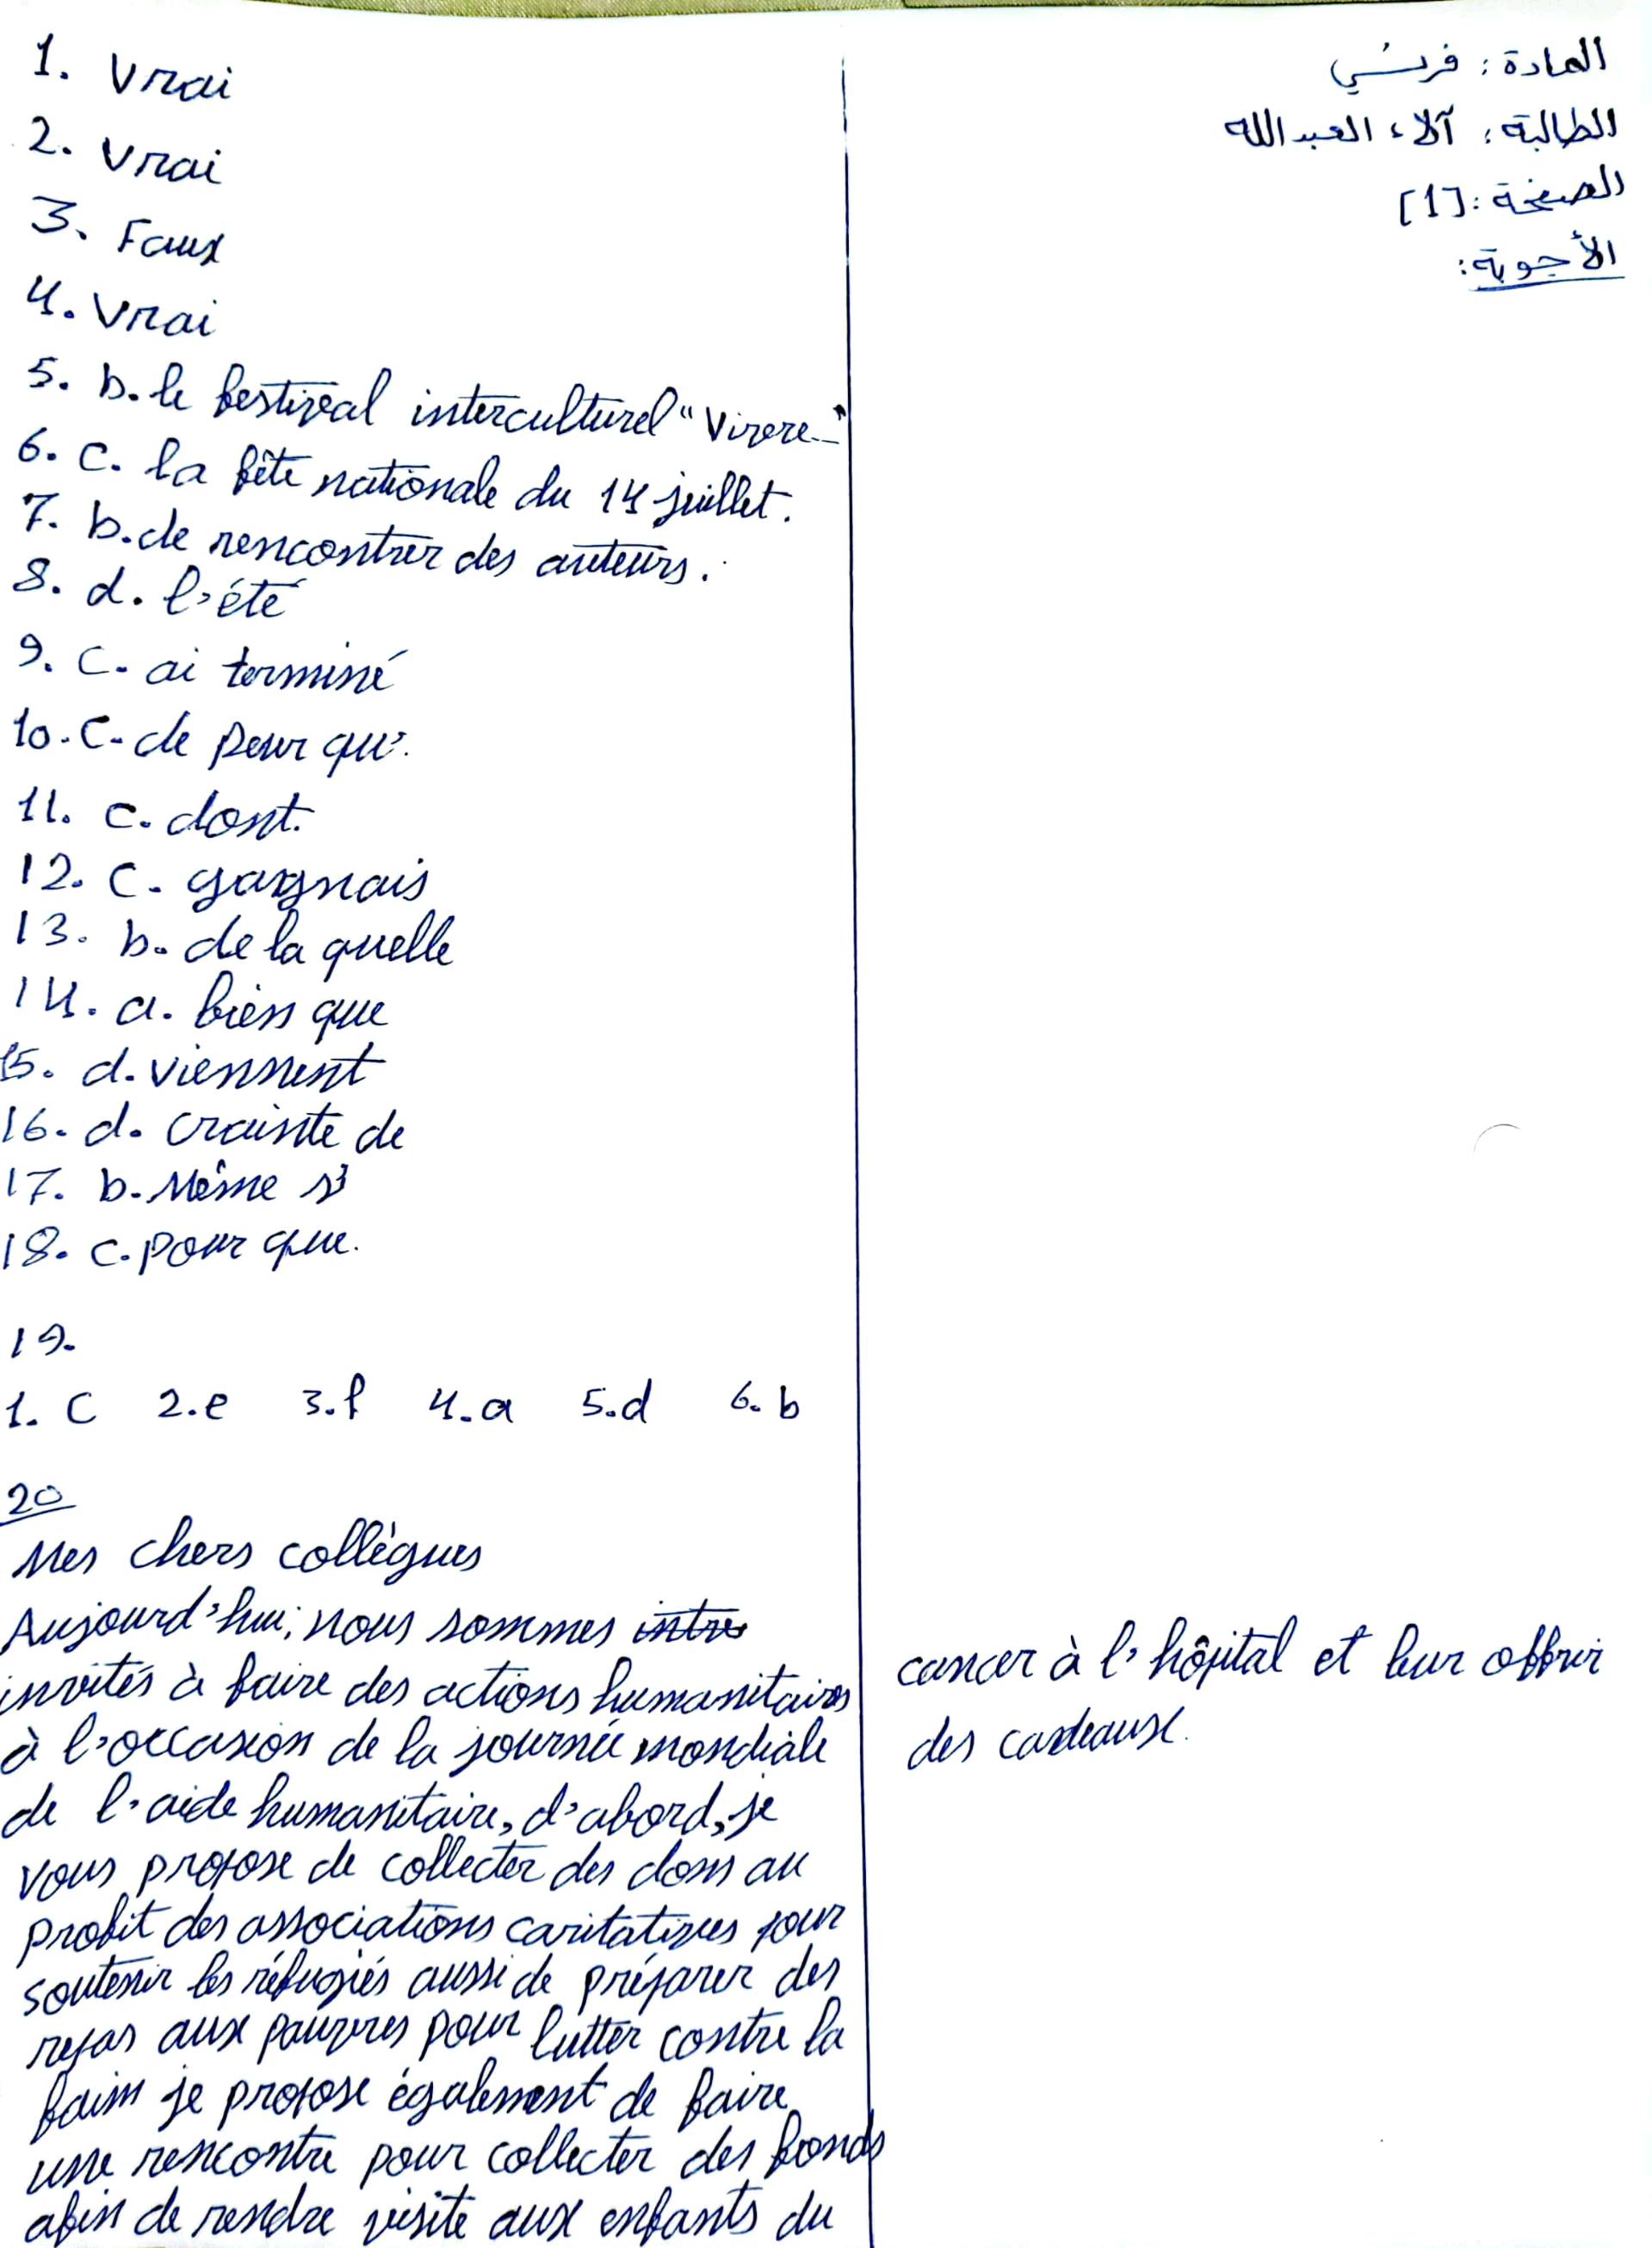 المادة: فرنسي
الطالبة: آلاء العبدالله
الصفحة: [1]
الأجوبة:
1. Vrai
2. Vrai
3. Faux
4. Vrai
5. b. le festival interculturel "Vivere..."
6. c. la fête nationale du 14 juillet.
7. b. de rencontrer des auteurs.
8. d. l'été
9. c. ai terminé
10. c. de peur qu'.
11. c. dont.
12. c. gagnais
13. b. de la quelle
14. a. bien que
15. d. viennent
16. d. crainte de
17. b. Même si
18. c. pour que.
19.
1. c 2. e 3. f 4. a 5. d 6. b
20
Mes chers collègues
Aujourd'hui, nous sommes intre
invités à faire des actions humanitaires
à l'occasion de la journée mondiale
de l'aide humanitaire, d'abord, je
vous propose de collecter des dons au
profit des associations caritatives pour
soutenir les réfugiés aussi de préparer des
repas aux pauvres pour lutter contre la
faim je propose également de faire
une rencontre pour collecter des fonds
afin de rendre visite aux enfants du
cancer à l'hôpital et leur offrir
des cadeaux.